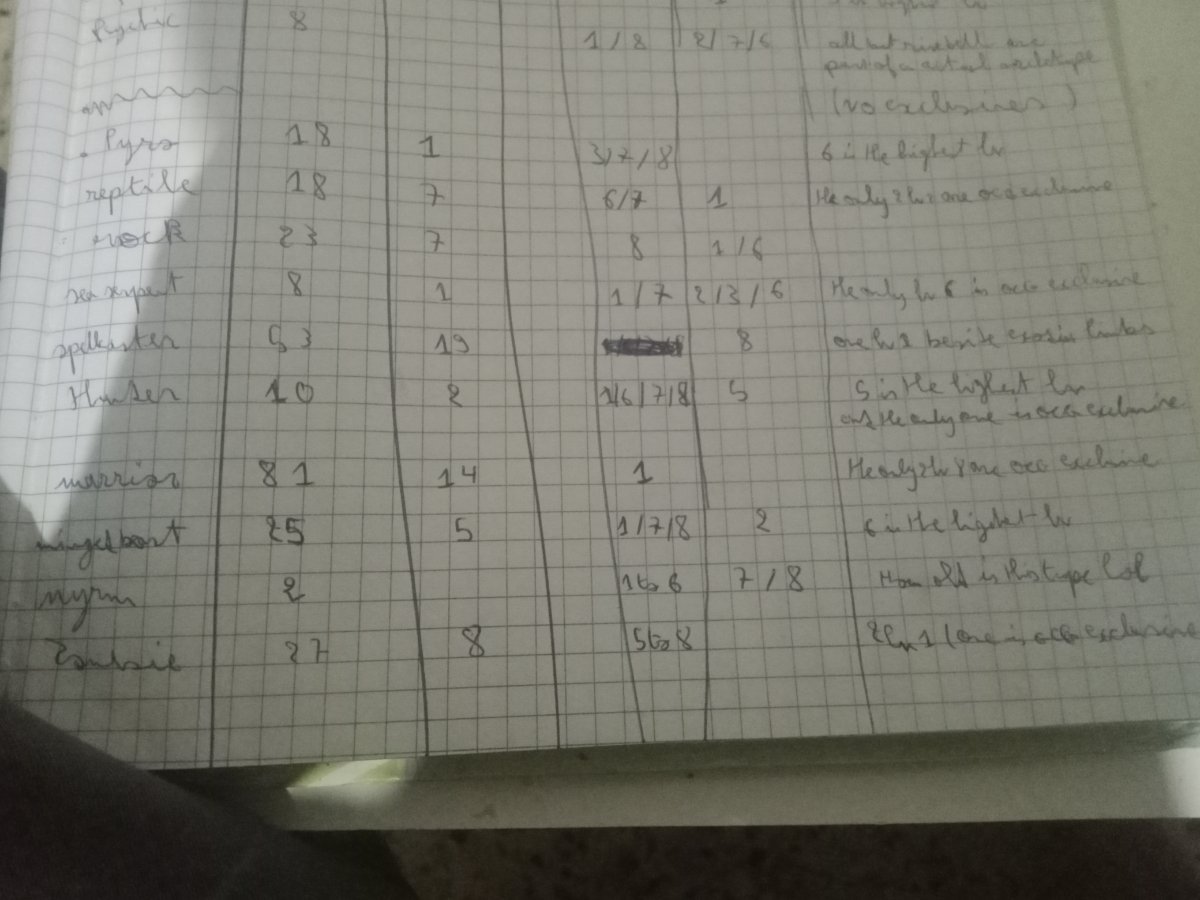 Psychic 8 1/8 2/7/6 all but are
part of a actual archetype
(no exclusives)
. Pyro 18 1 3/7/8 6 is the highest lv
reptile 18 7 6/7 1 the only 2 lv 2 are ocg exclusive
rock 23 7 8 1/6
sea serpent 8 1 1/7 2/3/6 the only lv 6 is ocg exclusive
spellcaster 53 19 8 one lv 2 beside
Thunder 10 2 1/6/7/8 5 5 is the highest lv
and the only one is ocg exclusive
warrior 81 14 1 the only 2 lv 8 are ocg exclusive
winged beast 25 5 1/7/8 2 6 is the highest lv
wyrm 2 1 to 6 7/8 How old is this type lol
Zombie 27 8 5 to 8 2 lv 1 (one is ocg exclusive